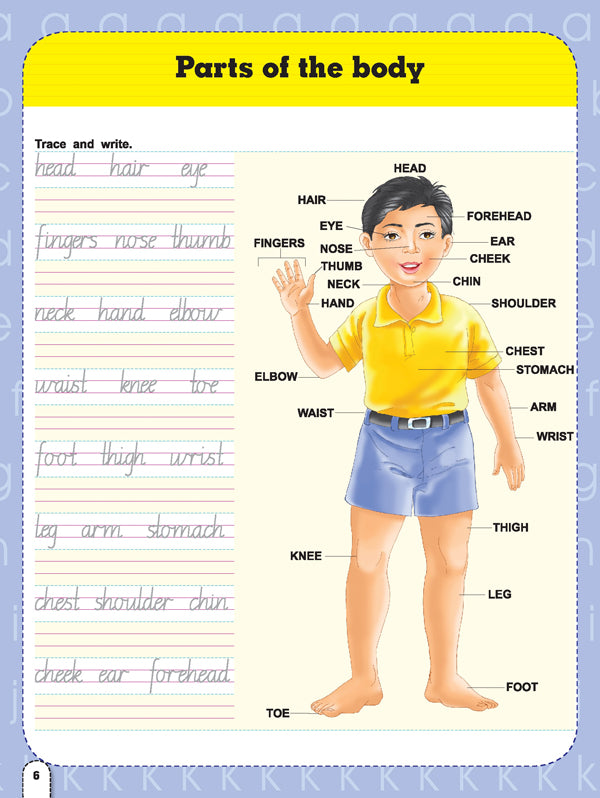 Parts of the body
Trace and write.
head hair eye
fingers nose thumb
neck hand elbow
waist knee toe
foot thigh wrist
leg arm stomach
chest shoulder chin
cheek ear forehead
HEAD
HAIR
FOREHEAD
EYE
EAR
FINGERS
NOSE
CHEEK
THUMB
NECK
CHIN
HAND
SHOULDER
CHEST
STOMACH
ELBOW
ARM
WAIST
WRIST
THIGH
KNEE
LEG
FOOT
TOE
6